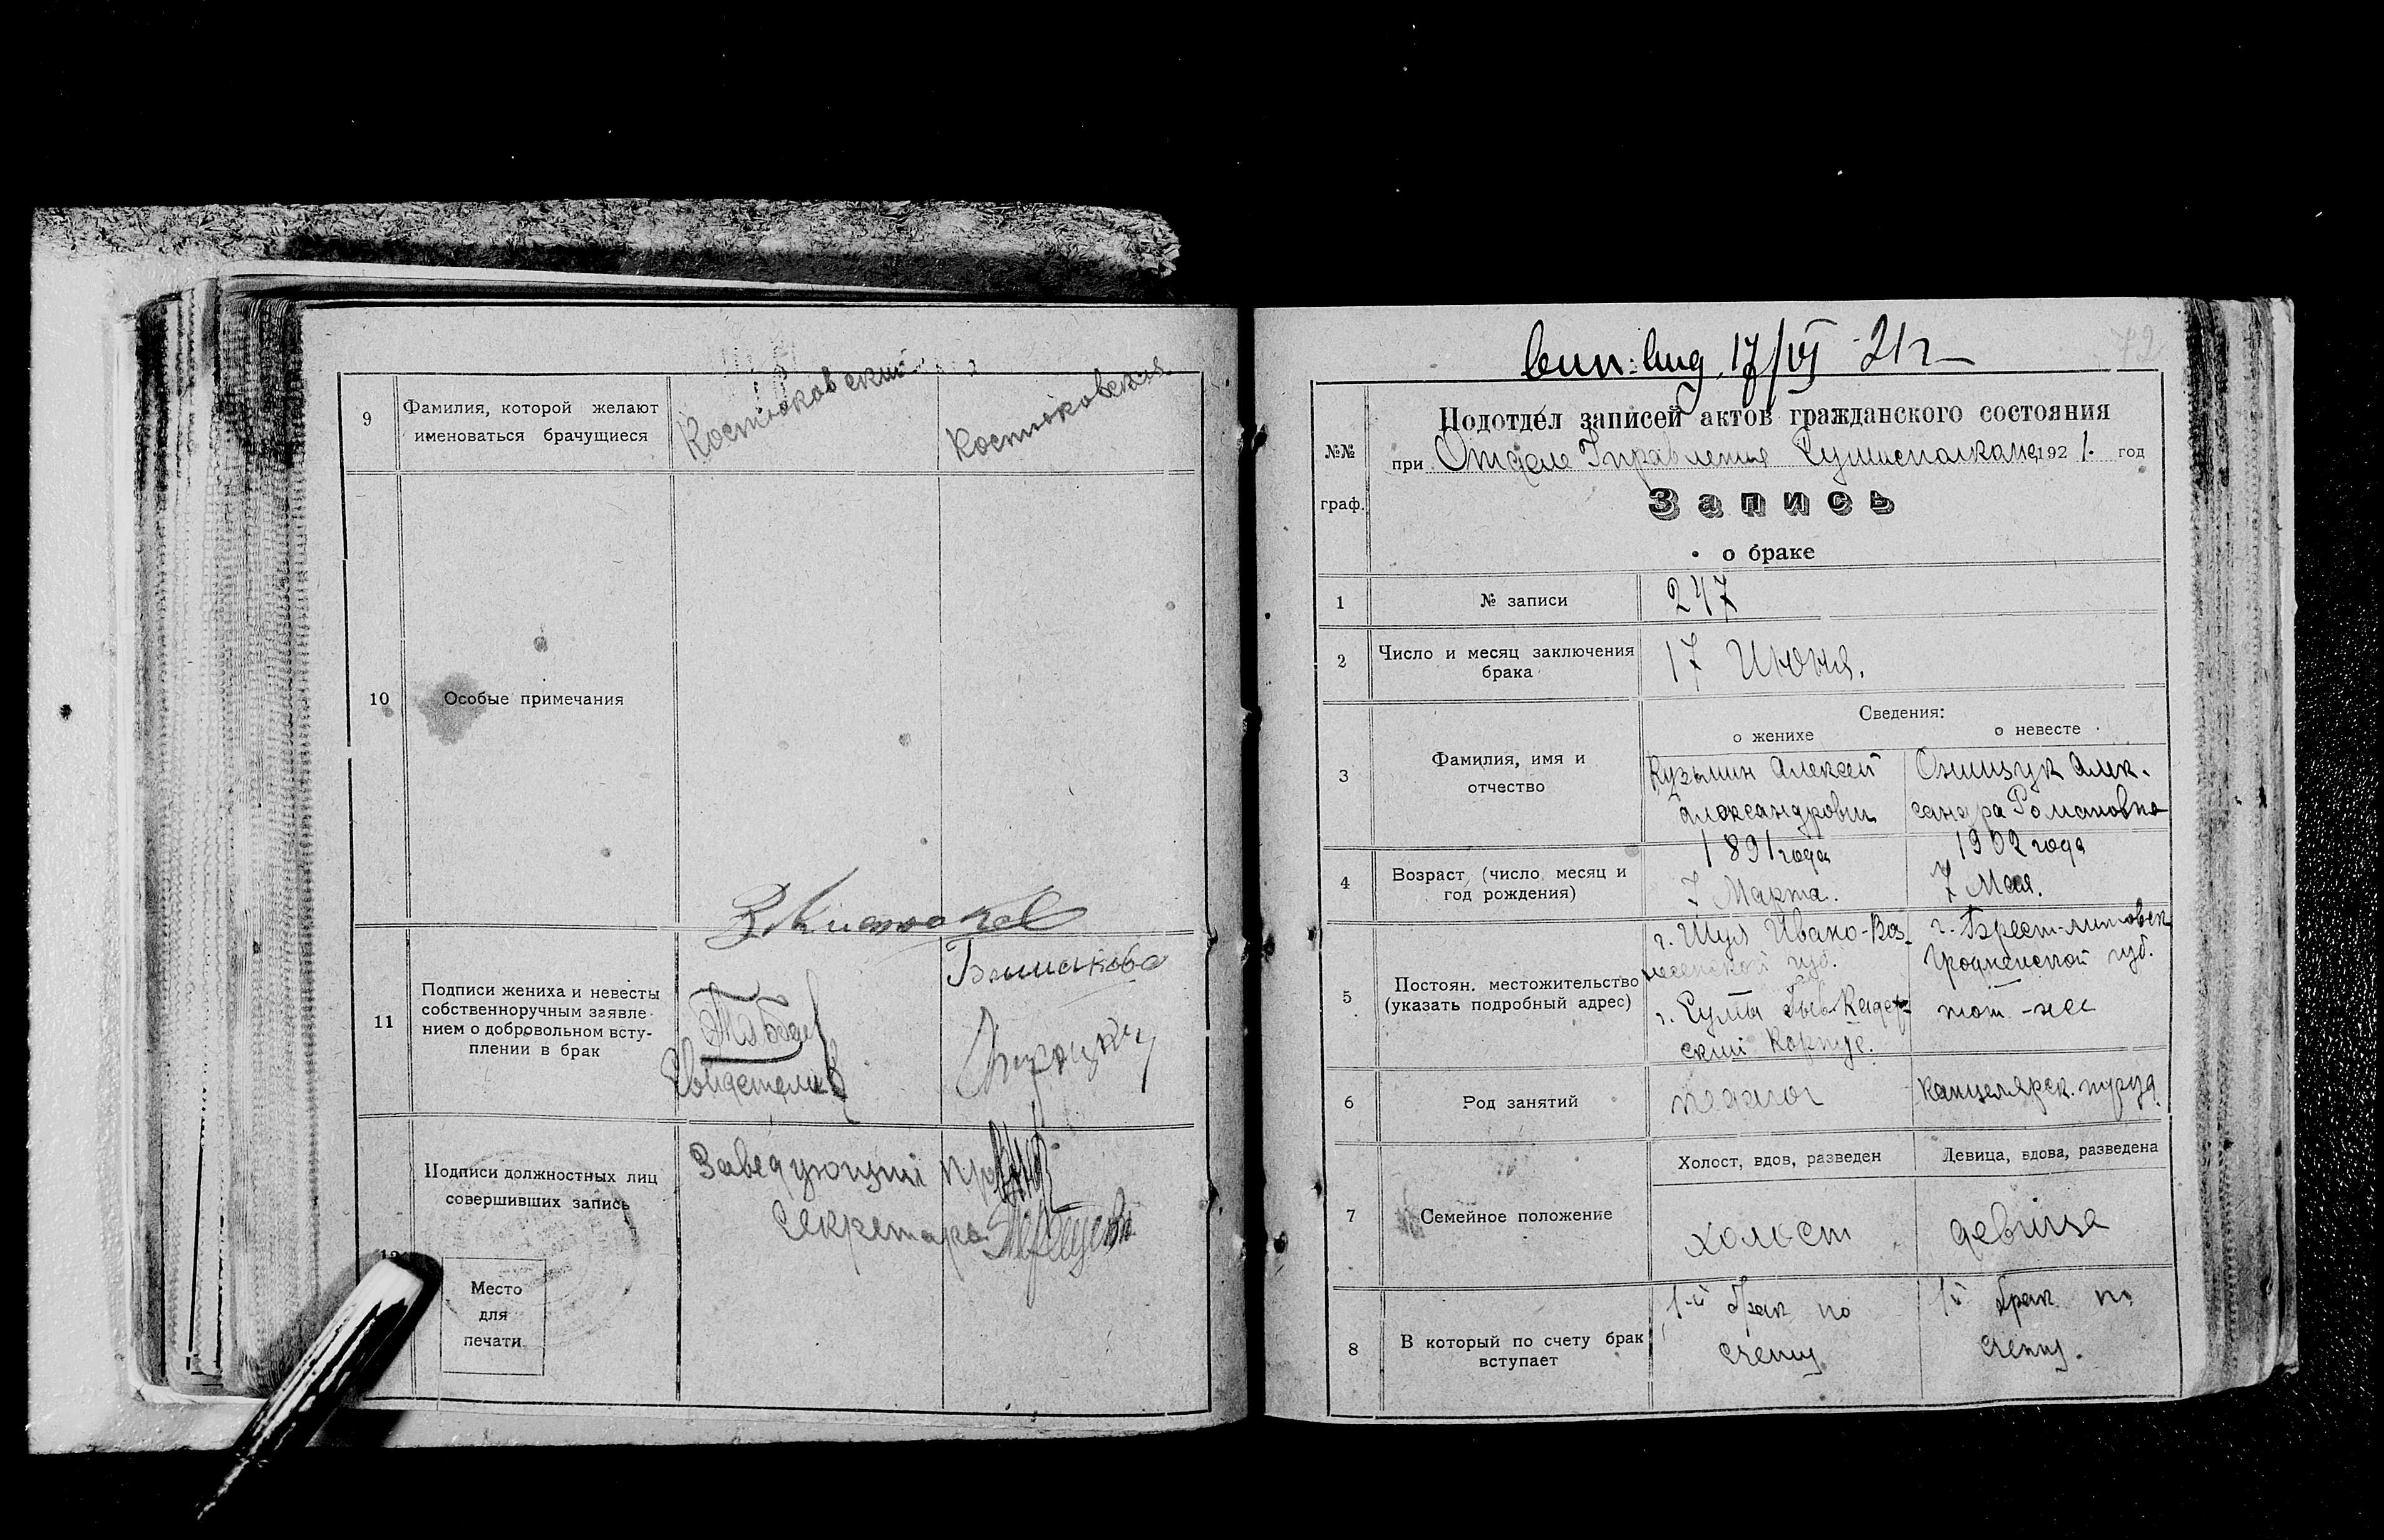 9
Фамилия, которой желают
именоваться брачущиеся
Костюковский
Костюковская
10
Особые примечания
11
Подписи жениха и невесты
собственноручным заявле-
нием о добровольном всту-
плении в брак
Свидетели
Подписи должностных лиц
совершивших запись
Заведующий
Секретарь
12
Место
для
печати
17/VI 21 г
72
№№
граф.
Подотдел записей актов гражданского состояния
при Отделе Управления 1921. год
Запись
о браке
1
№ записи
247
2
Число и месяц заключения
брака
17 Июня.
Сведения:
о женихе
о невесте
3
Фамилия, имя и
отчество
Кузьмин Алексей
Александрович
Онищук Алек-
сандра Романовна
4
Возраст (число месяц и
год рождения)
1891 года
7 Марта.
1902 года
7 Мая.
5
Постоян. местожительство
(указать подробный адрес)
г. Шуя Ивано-Воз.
несенской губ.
г. Сумы Быв. Кадет-
ский Корпус.
г. Брест-Литовск
Гродненской губ.
тот-же
6
Род занятий
педагог
канцелярск. труд
7
Семейное положение
Холост, вдов, разведен
Девица, вдова, разведена
холост
девица
8
В который по счету брак
вступает
1-й брак по
счету
1й брак по
счету.